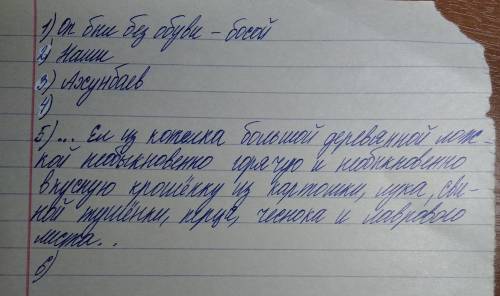 1) Он был без обуви - босой
2) Наши
3) Ахунбаев
4)
5)... Ел из котелка большой деревянной лож-
кой необыкновенно горячую и необыкновенно
вкусную крошёнку из картошки, лука, сви-
ной тушёнки, перца, чеснока и лаврового
листа..
6)